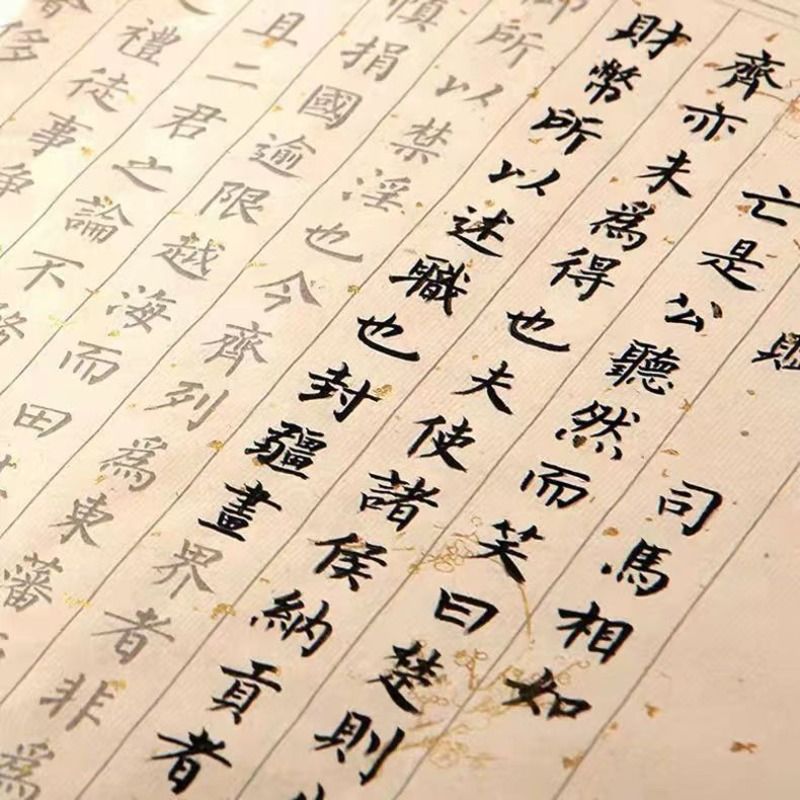 司馬相如
亡是公聽然而笑曰楚則
齊亦未爲得也夫使諸侯納貢者
財幣所以述職也封疆畫界者非爲
所以禁淫也今齊列爲東藩
慎捐國逾限越海而田
且二君之論不務
禮徒事爭
侈